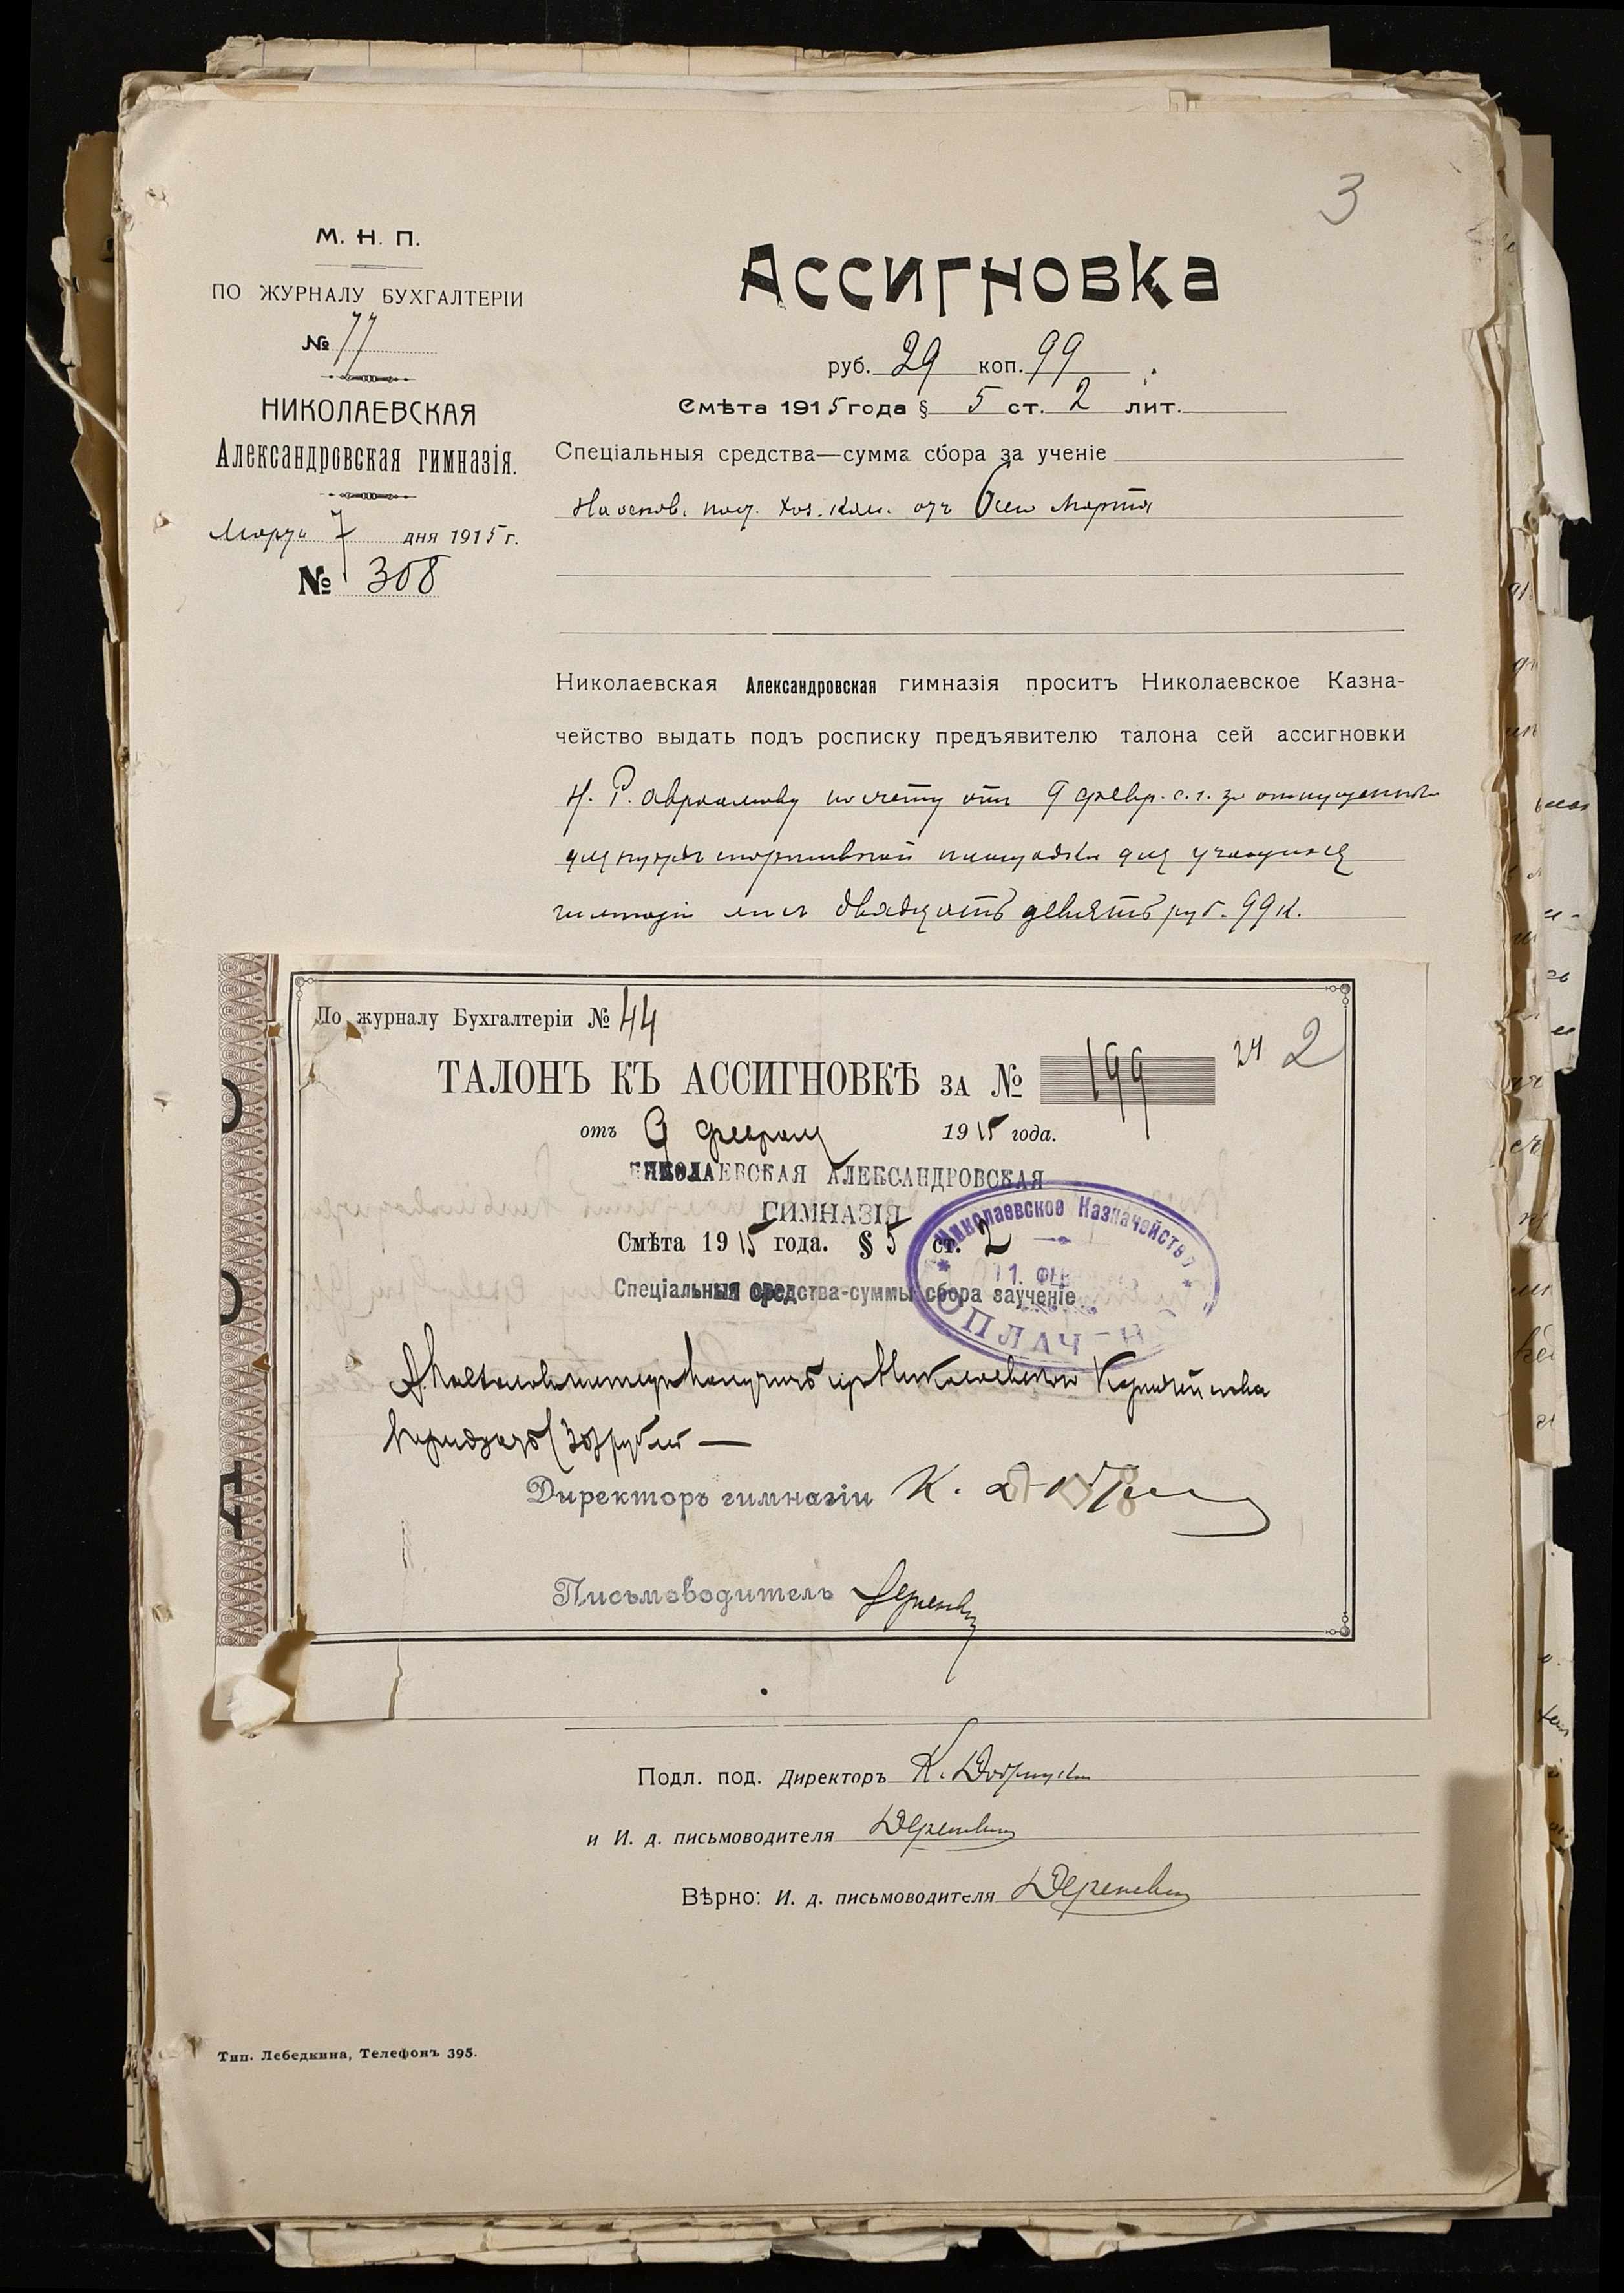 3
М. Н. П.
ПО ЖУРНАЛУ БУХГАЛТЕРІИ
№ 77
НИКОЛАЕВСКАЯ
Александровская гимназія.
Марта 7 дня 1915 г.
№ 308
Ассигновка
руб. 29 коп. 99
Смѣта 1915 года § 5 ст. 2 лит.
Спеціальныя средства—сумма сбора за ученіе
На основ. пост. хоз. ком. отъ 6-го Марта
Николаевская Александровская гимназія проситъ Николаевское Казна-
чейство выдать подъ росписку предъявителю талона сей ассигновки
Н. Р. Авраамову по счету отъ 9 февр. с. г. за
для спортивной площадки для учащихся
гимназіи двадцать девять руб. 99 к.
По журналу Бухгалтеріи № 44
24 2
ТАЛОНЪ КЪ АССИГНОВКѢ ЗА № 199
отъ 9 февраля 1915 года.
НИКОЛАЕВСКАЯ АЛЕКСАНДРОВСКАЯ
ГИМНАЗІЯ
Смѣта 1915 года. § 5 ст. 2
Николаевское Казначейство
11. ФЕВ
ОПЛАЧ
Спеціальныя средства-суммы сбора заученіе
получитъ изъ Николаевскаго Казначейства
тридцать (30) рублей —
Директоръ гимназіи К.
Письмоводитель
Подл. под. Директоръ К.
и И. д. письмоводителя
Вѣрно: И. д. письмоводителя
Тип. Лебедкина, Телефонъ 395.